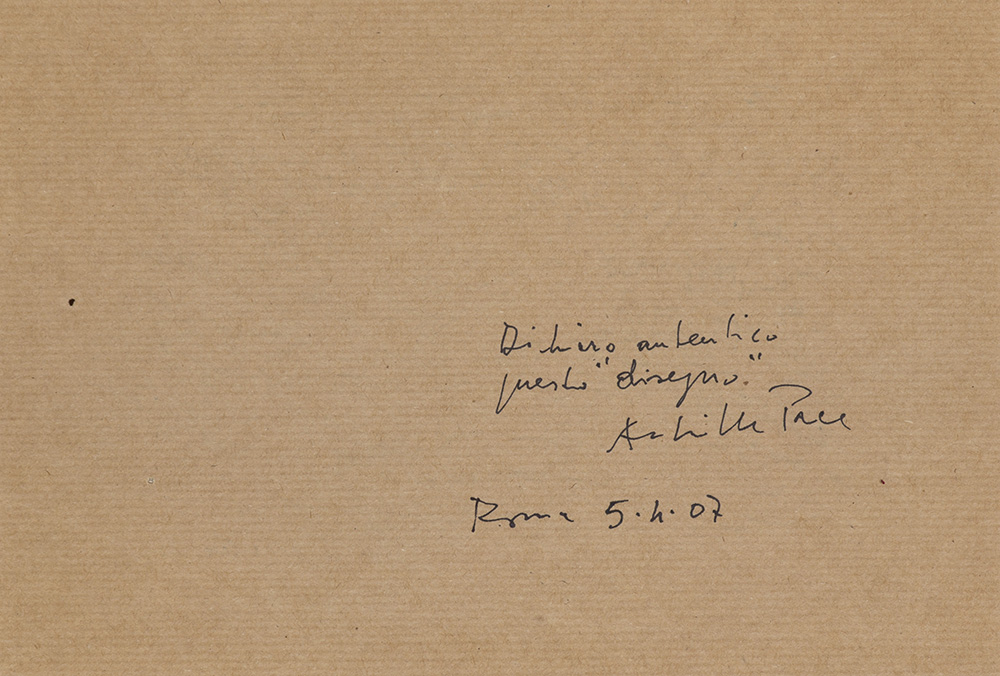 Dichiaro autentico
questo "disegno."
Achille Pace
Roma 5.4.07